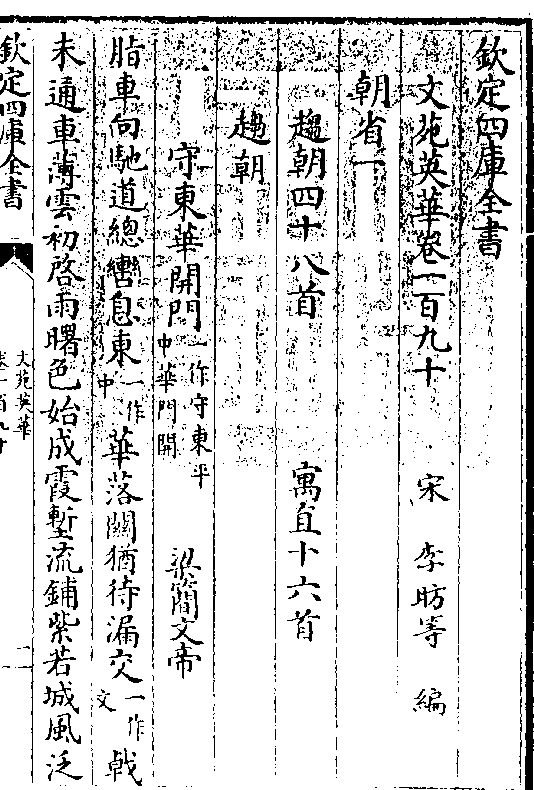 欽定四庫全書
文苑英華卷一百九十
宋 李昉等 編
朝省一
趨朝四十八首 寓直十六首
趨朝
守東華開門一作守東平中華門開 梁簡文帝
脂車向馳道總轡息東一作中華落關猶待漏交一作文戟
未通車薄雲初啓雨曙色始成霞塹流鋪紫若城風泛
欽定四庫全書
文苑英華
卷一百九十